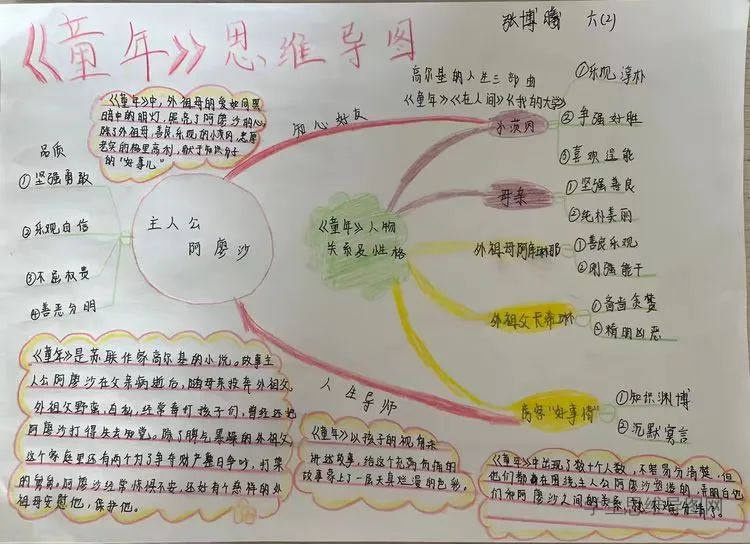 《童年》思维导图
张博曦 六(2)
《童年》中,外祖母的爱如同黑
暗中的明灯,照亮了阿廖沙的心
除了外祖母,善良、乐观的小茨冈,忠厚
老实的格里高利,献于知识分子
的“好事儿”
知心好友
高尔基的人生三部曲
《童年》《在人间》《我的大学》
品质
①坚强勇敢
②乐观自信
③不屈权贵
④善恶分明
主人公
阿廖沙
《童年》人物
关系及性格
小茨冈
①乐观 淳朴
②争强好胜
③喜欢逞能
母亲
①坚强善良
②纯朴美丽
外祖母阿库琳娜
①善良乐观
②刚强能干
外祖父卡希林
①吝啬贪婪
②精明凶恶
房客“好事情”
①知识渊博
②沉默寡言
人生导师
《童年》是苏联作家高尔基的小说。故事主
人公阿廖沙在父亲病逝后,随母亲投奔外祖父。
外祖父野蛮、自私,经常毒打孩子们,曾经还把
阿廖沙打得失去知觉。除了脾气暴躁的外祖父
这个家庭里还有两个为了争夺财产整日争吵,打架
的舅舅,阿廖沙经常惊惶不安,还好有个慈祥的外
祖母安慰他,保护他。
《童年》以孩子的视角来
讲述故事,给这个充满
故事蒙上了一层天真烂漫的色彩。
《童年》中出现了数十个人数,不容易分清楚,但
他们都是在围绕主人公阿廖沙塑造的,弄明白他
们和阿廖沙之间的关系,就不难分清